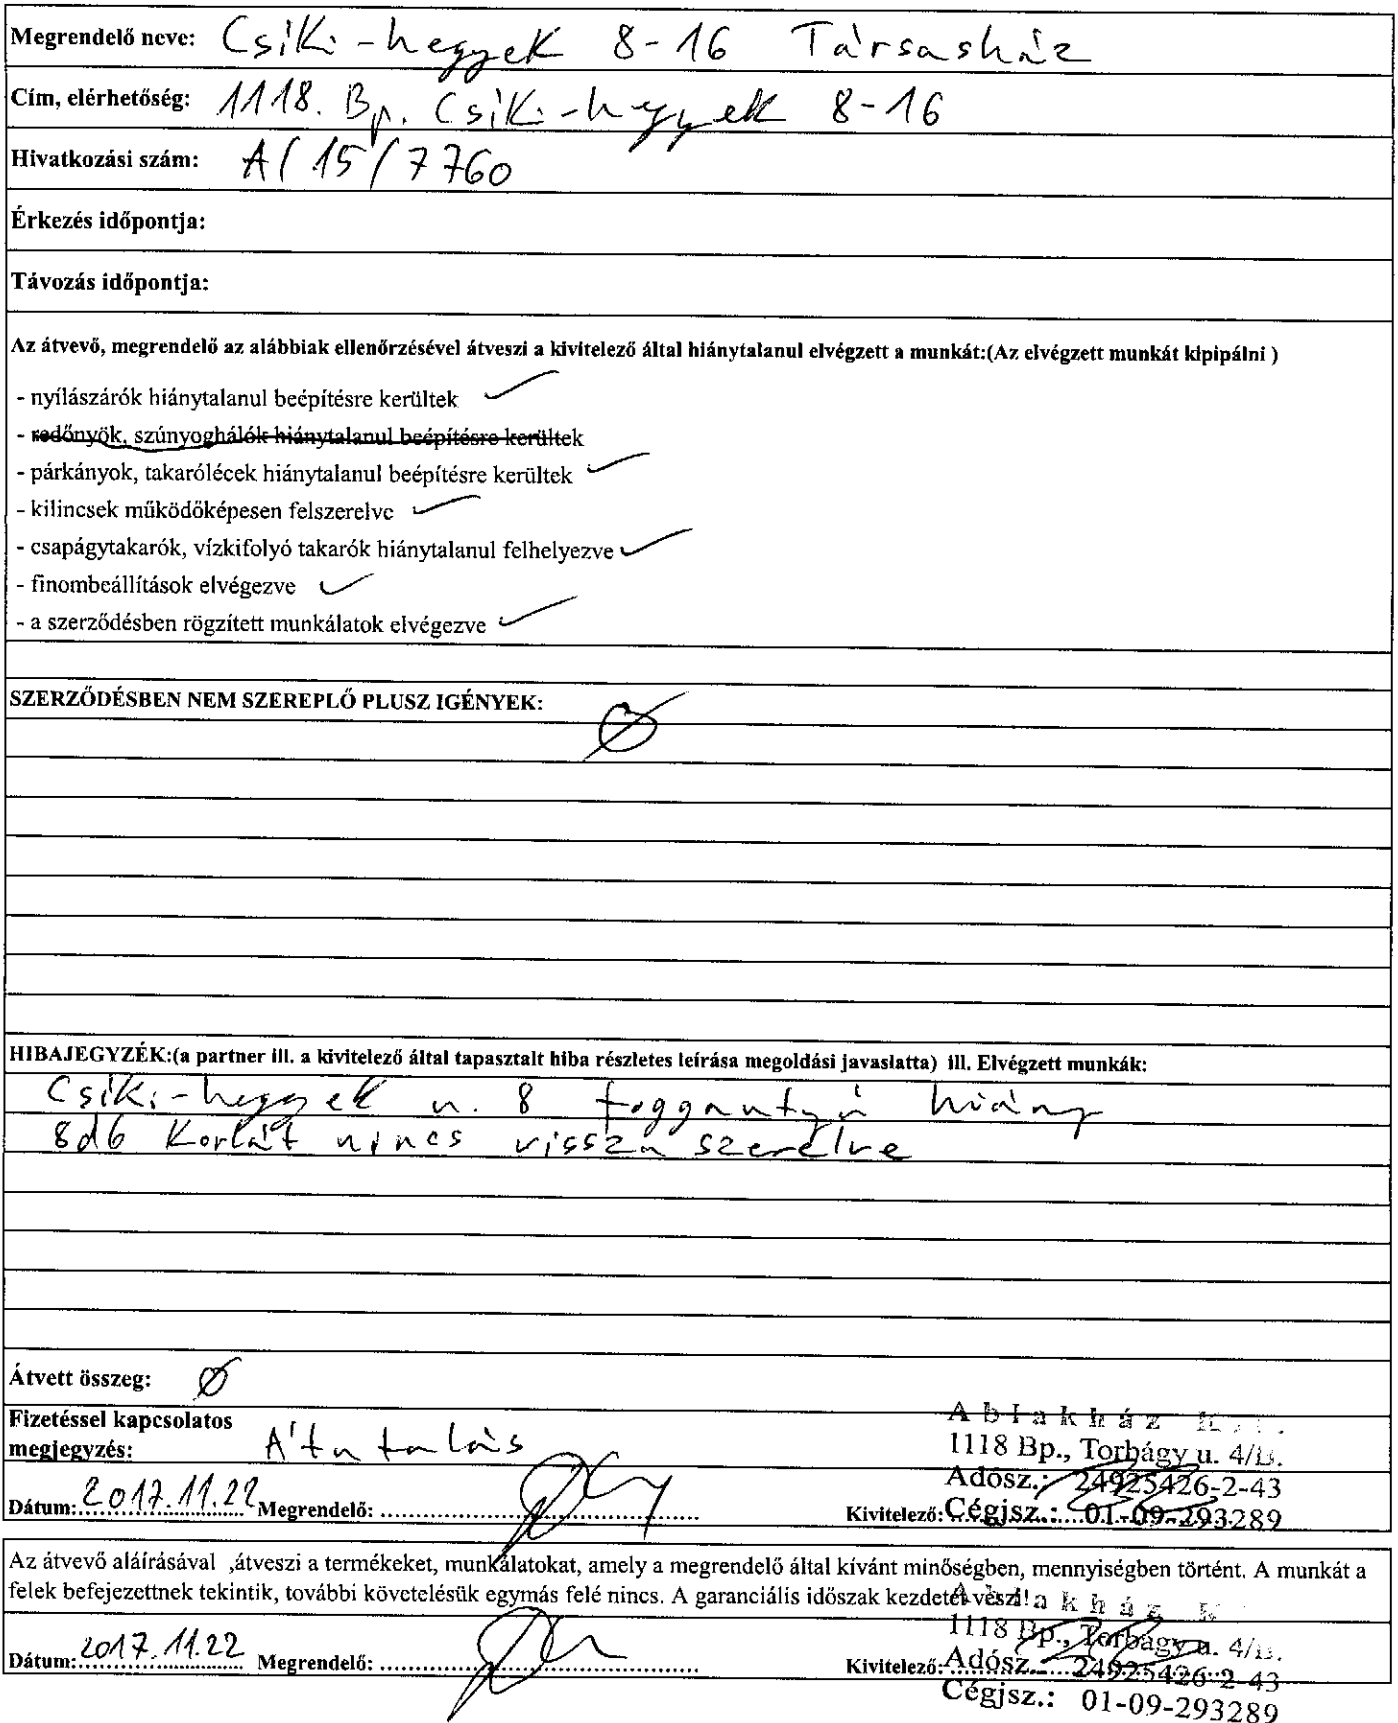 Megrendelő neve: Csiki-hegyek 8-16 Társasház
Cím, elérhetőség: 1118. Bp. Csiki-hegyek 8-16
Hivatkozási szám: A/15/7760
Érkezés időpontja:
Távozás időpontja:
Az átvevő, megrendelő az alábbiak ellenőrzésével átveszi a kivitelező által hiánytalanul elvégzett a munkát:(Az elvégzett munkát kipipálni )
- nyílászárók hiánytalanul beépítésre kerültek ✓
- redőnyök, szúnyoghálók hiánytalanul beépítésre kerültek
- párkányok, takarólécek hiánytalanul beépítésre kerültek ✓
- kilincsek működőképesen felszerelve ✓
- csapágytakarók, vízkifolyó takarók hiánytalanul felhelyezve ✓
- finombeállítások elvégezve ✓
- a szerződésben rögzített munkálatok elvégezve ✓
SZERZŐDÉSBEN NEM SZEREPLŐ PLUSZ IGÉNYEK:
Ø
HIBAJEGYZÉK:(a partner ill. a kivitelező által tapasztalt hiba részletes leírása megoldási javaslatta) ill. Elvégzett munkák:
Csiki-hegyek u. 8 foggantyú hiány
8db Korlát nincs vissza szerelve
Átvett összeg: Ø
Fizetéssel kapcsolatos
megjegyzés: Átutalás
Ablakház
1118 Bp., Torbágy u. 4/B.
Adósz.: 24925426-2-43
Dátum: 2017.11.22 Megrendelő: Kivitelező: Cégjsz.: 01-09-293289
Az átvevő aláírásával ,átveszi a termékeket, munkálatokat, amely a megrendelő által kívánt minőségben, mennyiségben történt. A munkát a
felek befejezettnek tekintik, további követelésük egymás felé nincs. A garanciális időszak kezdetét veszi!
Ablakház
1118 Bp., Torbágy u. 4/B.
Dátum: 2017.11.22 Megrendelő: Kivitelező: Adósz. 24925426-2-43
Cégjsz.: 01-09-293289